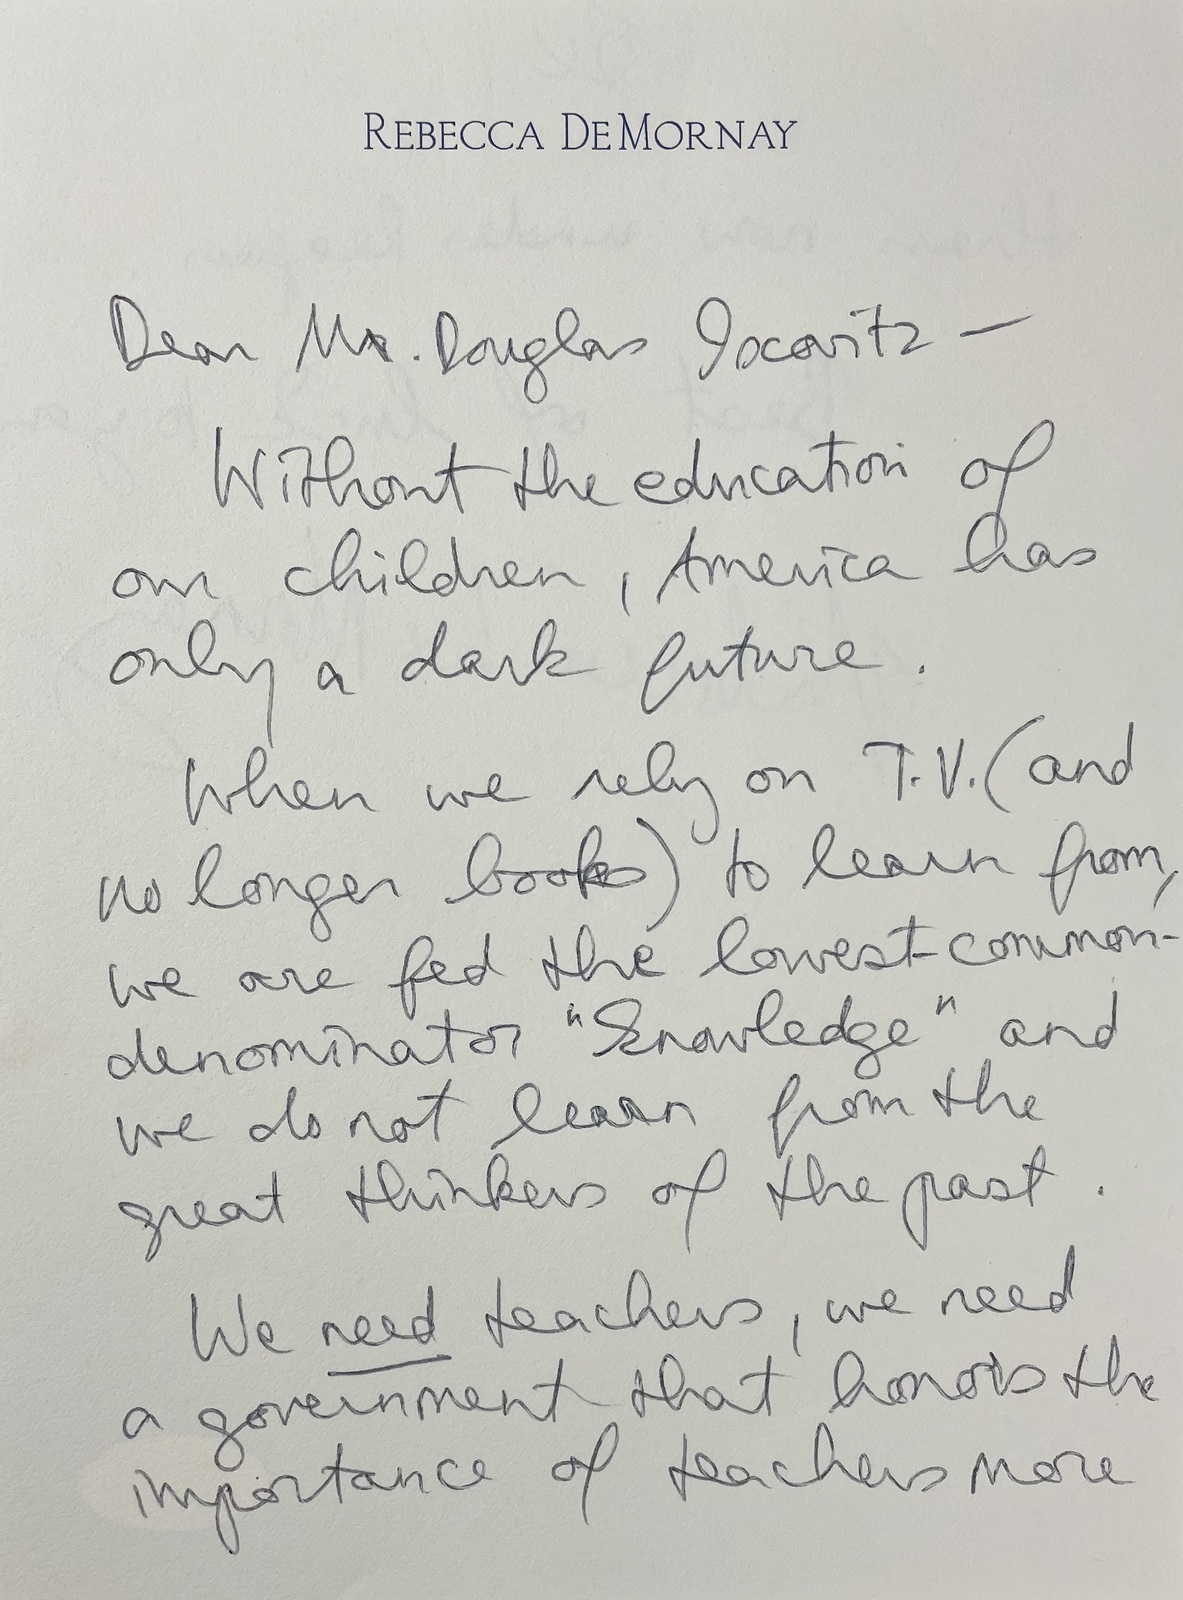 REBECCA DEMORNAY
Dear Mr. Douglas Iscovitz —
Without the education of
our children, America has
only a dark future.
When we rely on T.V. (and
no longer books) to learn from,
we are fed the lowest-common-
denominator "knowledge" and
we do not learn from the
great thinkers of the past.
We need teachers, we need
a government that honors the
importance of teachers more